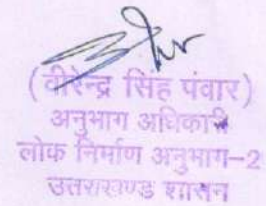 (वीरेन्द्र सिंह पंवार)
अनुभाग अधिकारी
लोक निर्माण अनुभाग-2
उत्तराखण्ड शासन